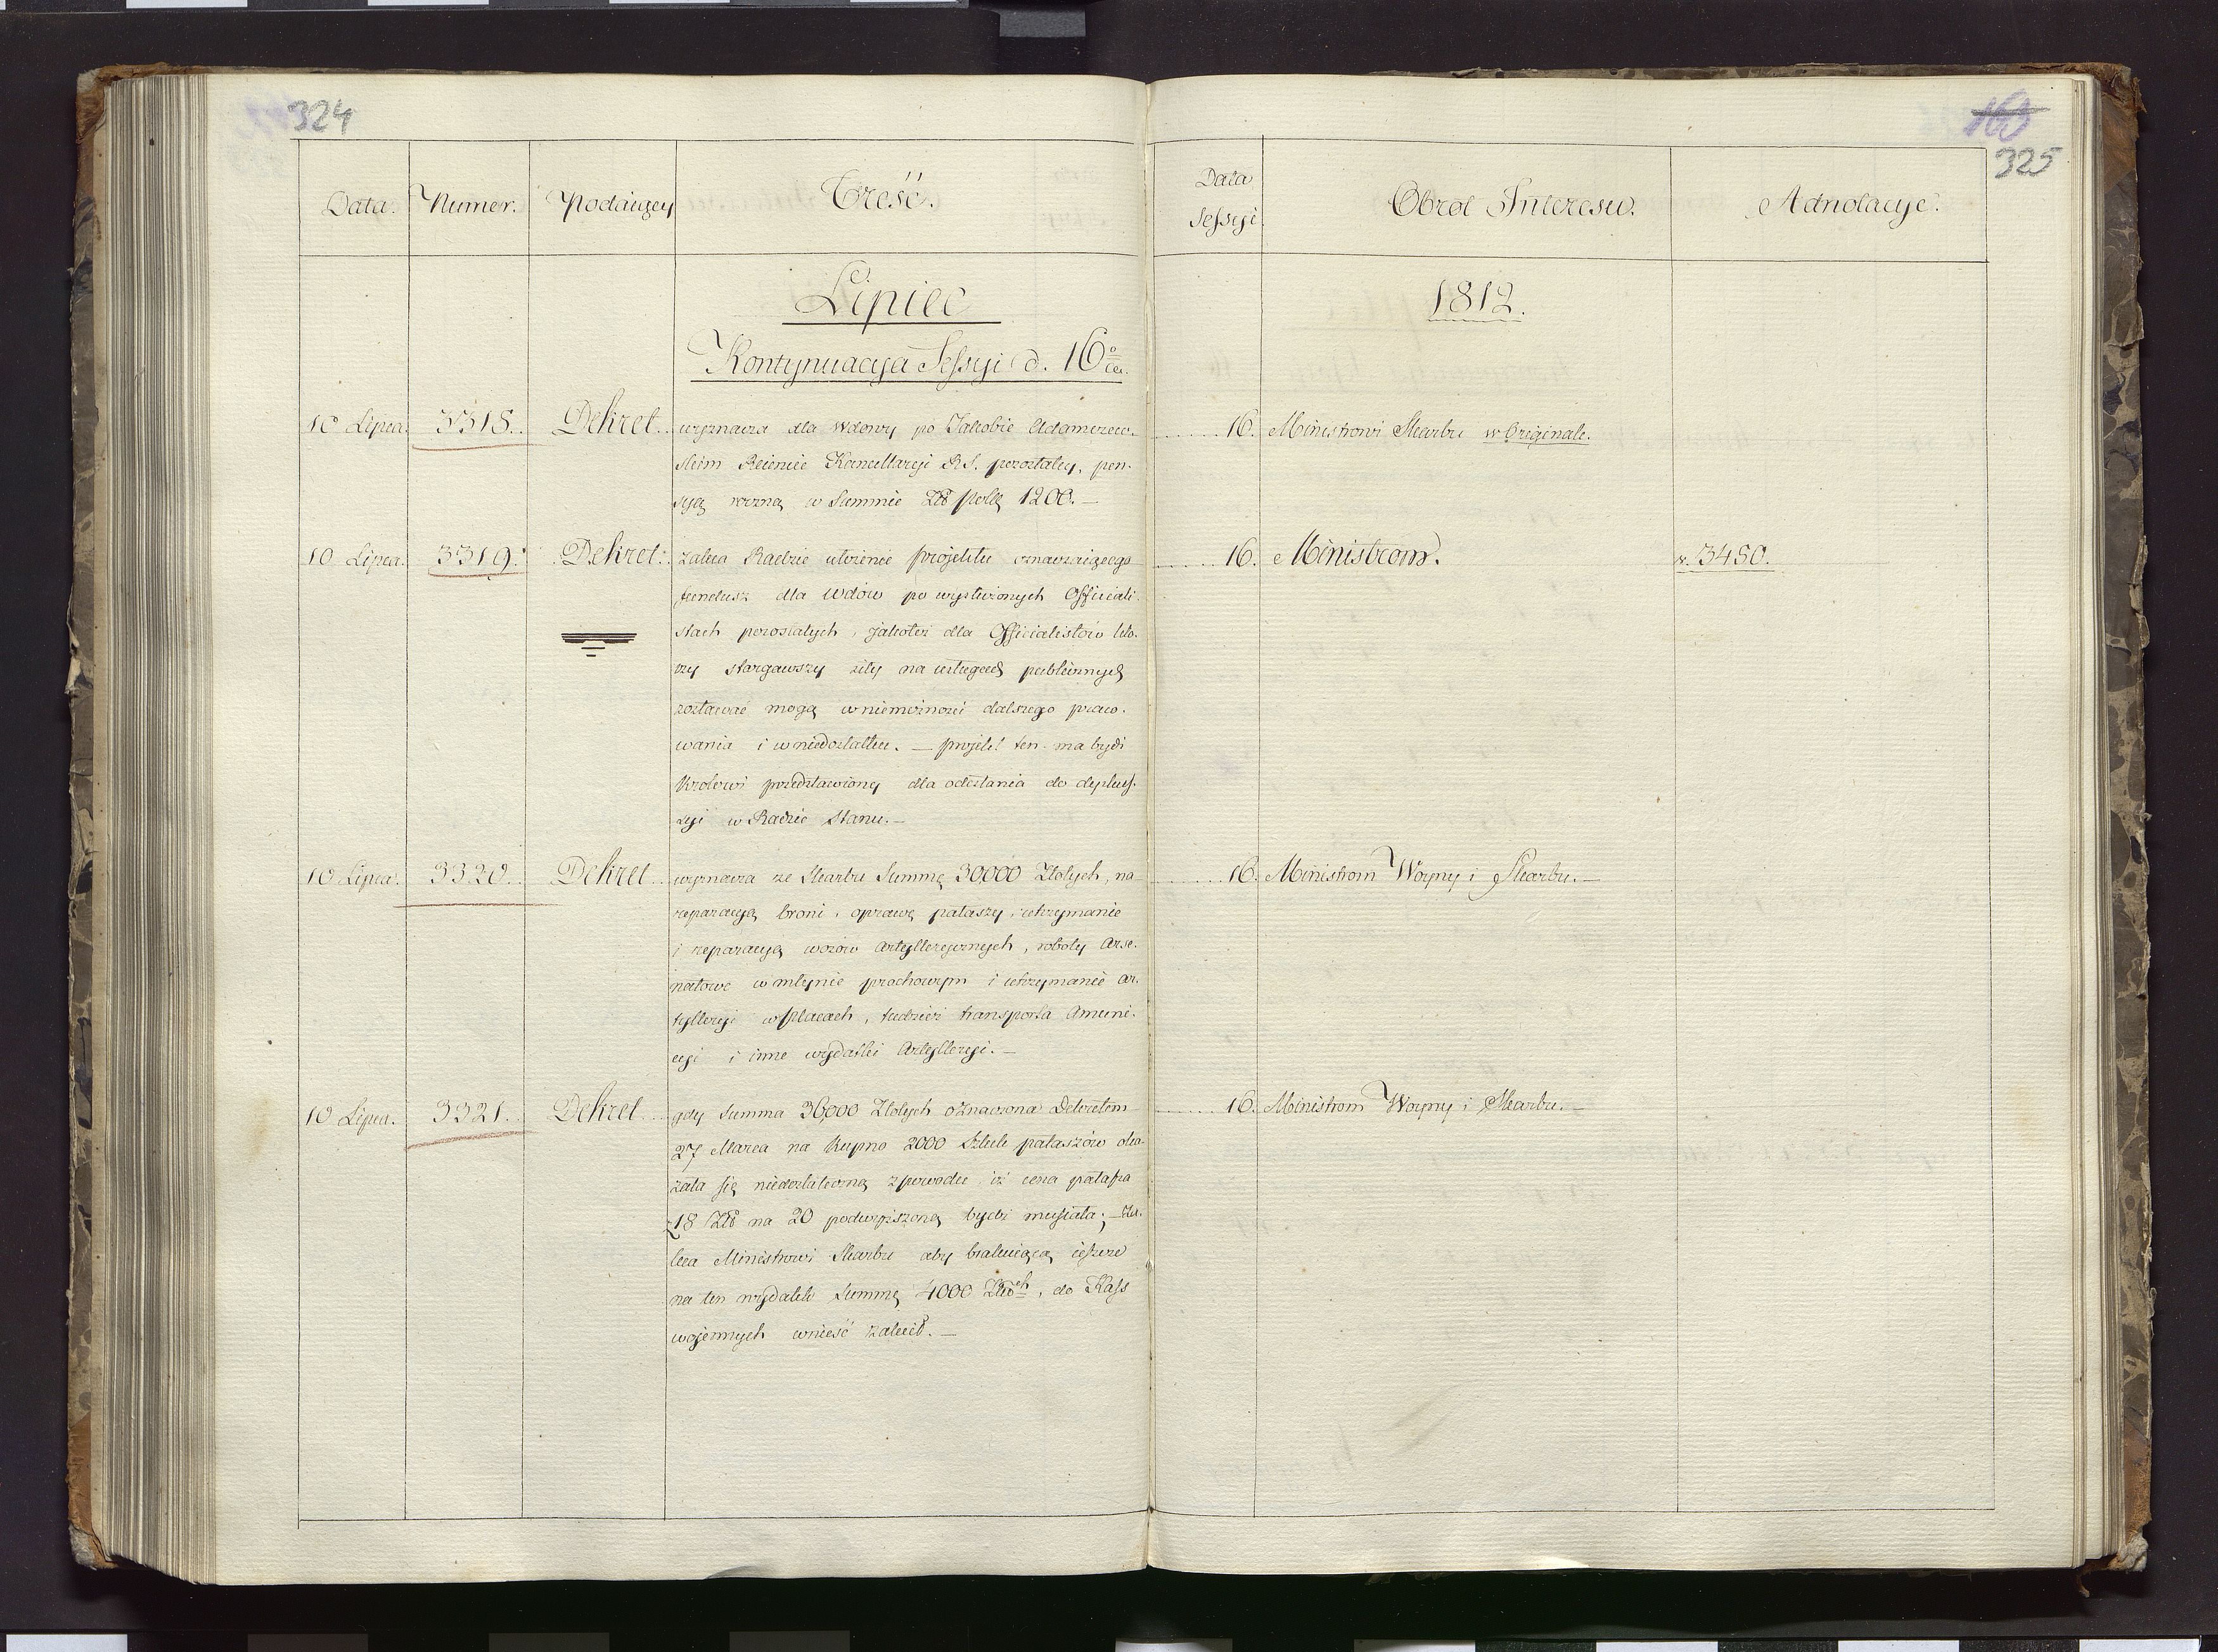 324
Data. Numer. Podaiącey Treść.
Lipiec
Kontynuacya Sessyi d. 16º
10 Lipca. 3318. Dekret. wyznacza dla Wdowy po Jakobie Adamczew-
skim Reiencie Kancellaryi R.S. pozostałey, pen-
syą roczną w Summie Złł polłę 1200.—
10 Lipca. 3319. Dekret. zaleca Radzie ułożenie projektu oznaczaiącego
fundusz dla Wdów po wysłużonych Officiali-
stach pozostałych, jakoteż dla Officialistów kto-
rzy stargawszy siły na usługach publicznych
zostawać mogą w niemożności dalszego praco-
wania i w niedostatku. — projekt ten ma bydź
Krolowi przedstawiony dla odesłania do dyskus-
syi w Radzie Stanu.—
10 Lipca. 3320. Dekret wyznacza ze Skarbu Summę 30,000 Złotych, na
reparacyą broni, oprawę pałaszy, utrzymanie
i reparacyą wozów Artyllerycznych, roboty Arse-
nałowe w młynie prochowym i utrzymanie Ar-
tylleryi w placach, tudzież transporta Amuni-
cyi i inne wydatki Artylleryi.—
10 Lipca. 3321. Dekret gdy Summa 36,000 Złotych oznaczona Dekretem
27 Marca na Kupno 2000 Sztuk pałaszów oka-
zała się niedostateczną z powodu iż cena pałasza
z 18 Złł na 20 podwyższoną bydź musiała; — za-
leca Ministrowi Skarbu aby brakuiącą ieszcze
na ten wydatek Summę 4000 Złłch, do Kass
wojennych wnieść zalecił.—
160
325
Data Sessyi Obrot Interesu. Adnotacye.
1812.
16. Ministrowi Skarbu w Originale.
16. Ministrom. N. 3480.
16. Ministrom Woyny i Skarbu.—
16. Ministrom Woyny i Skarbu.—